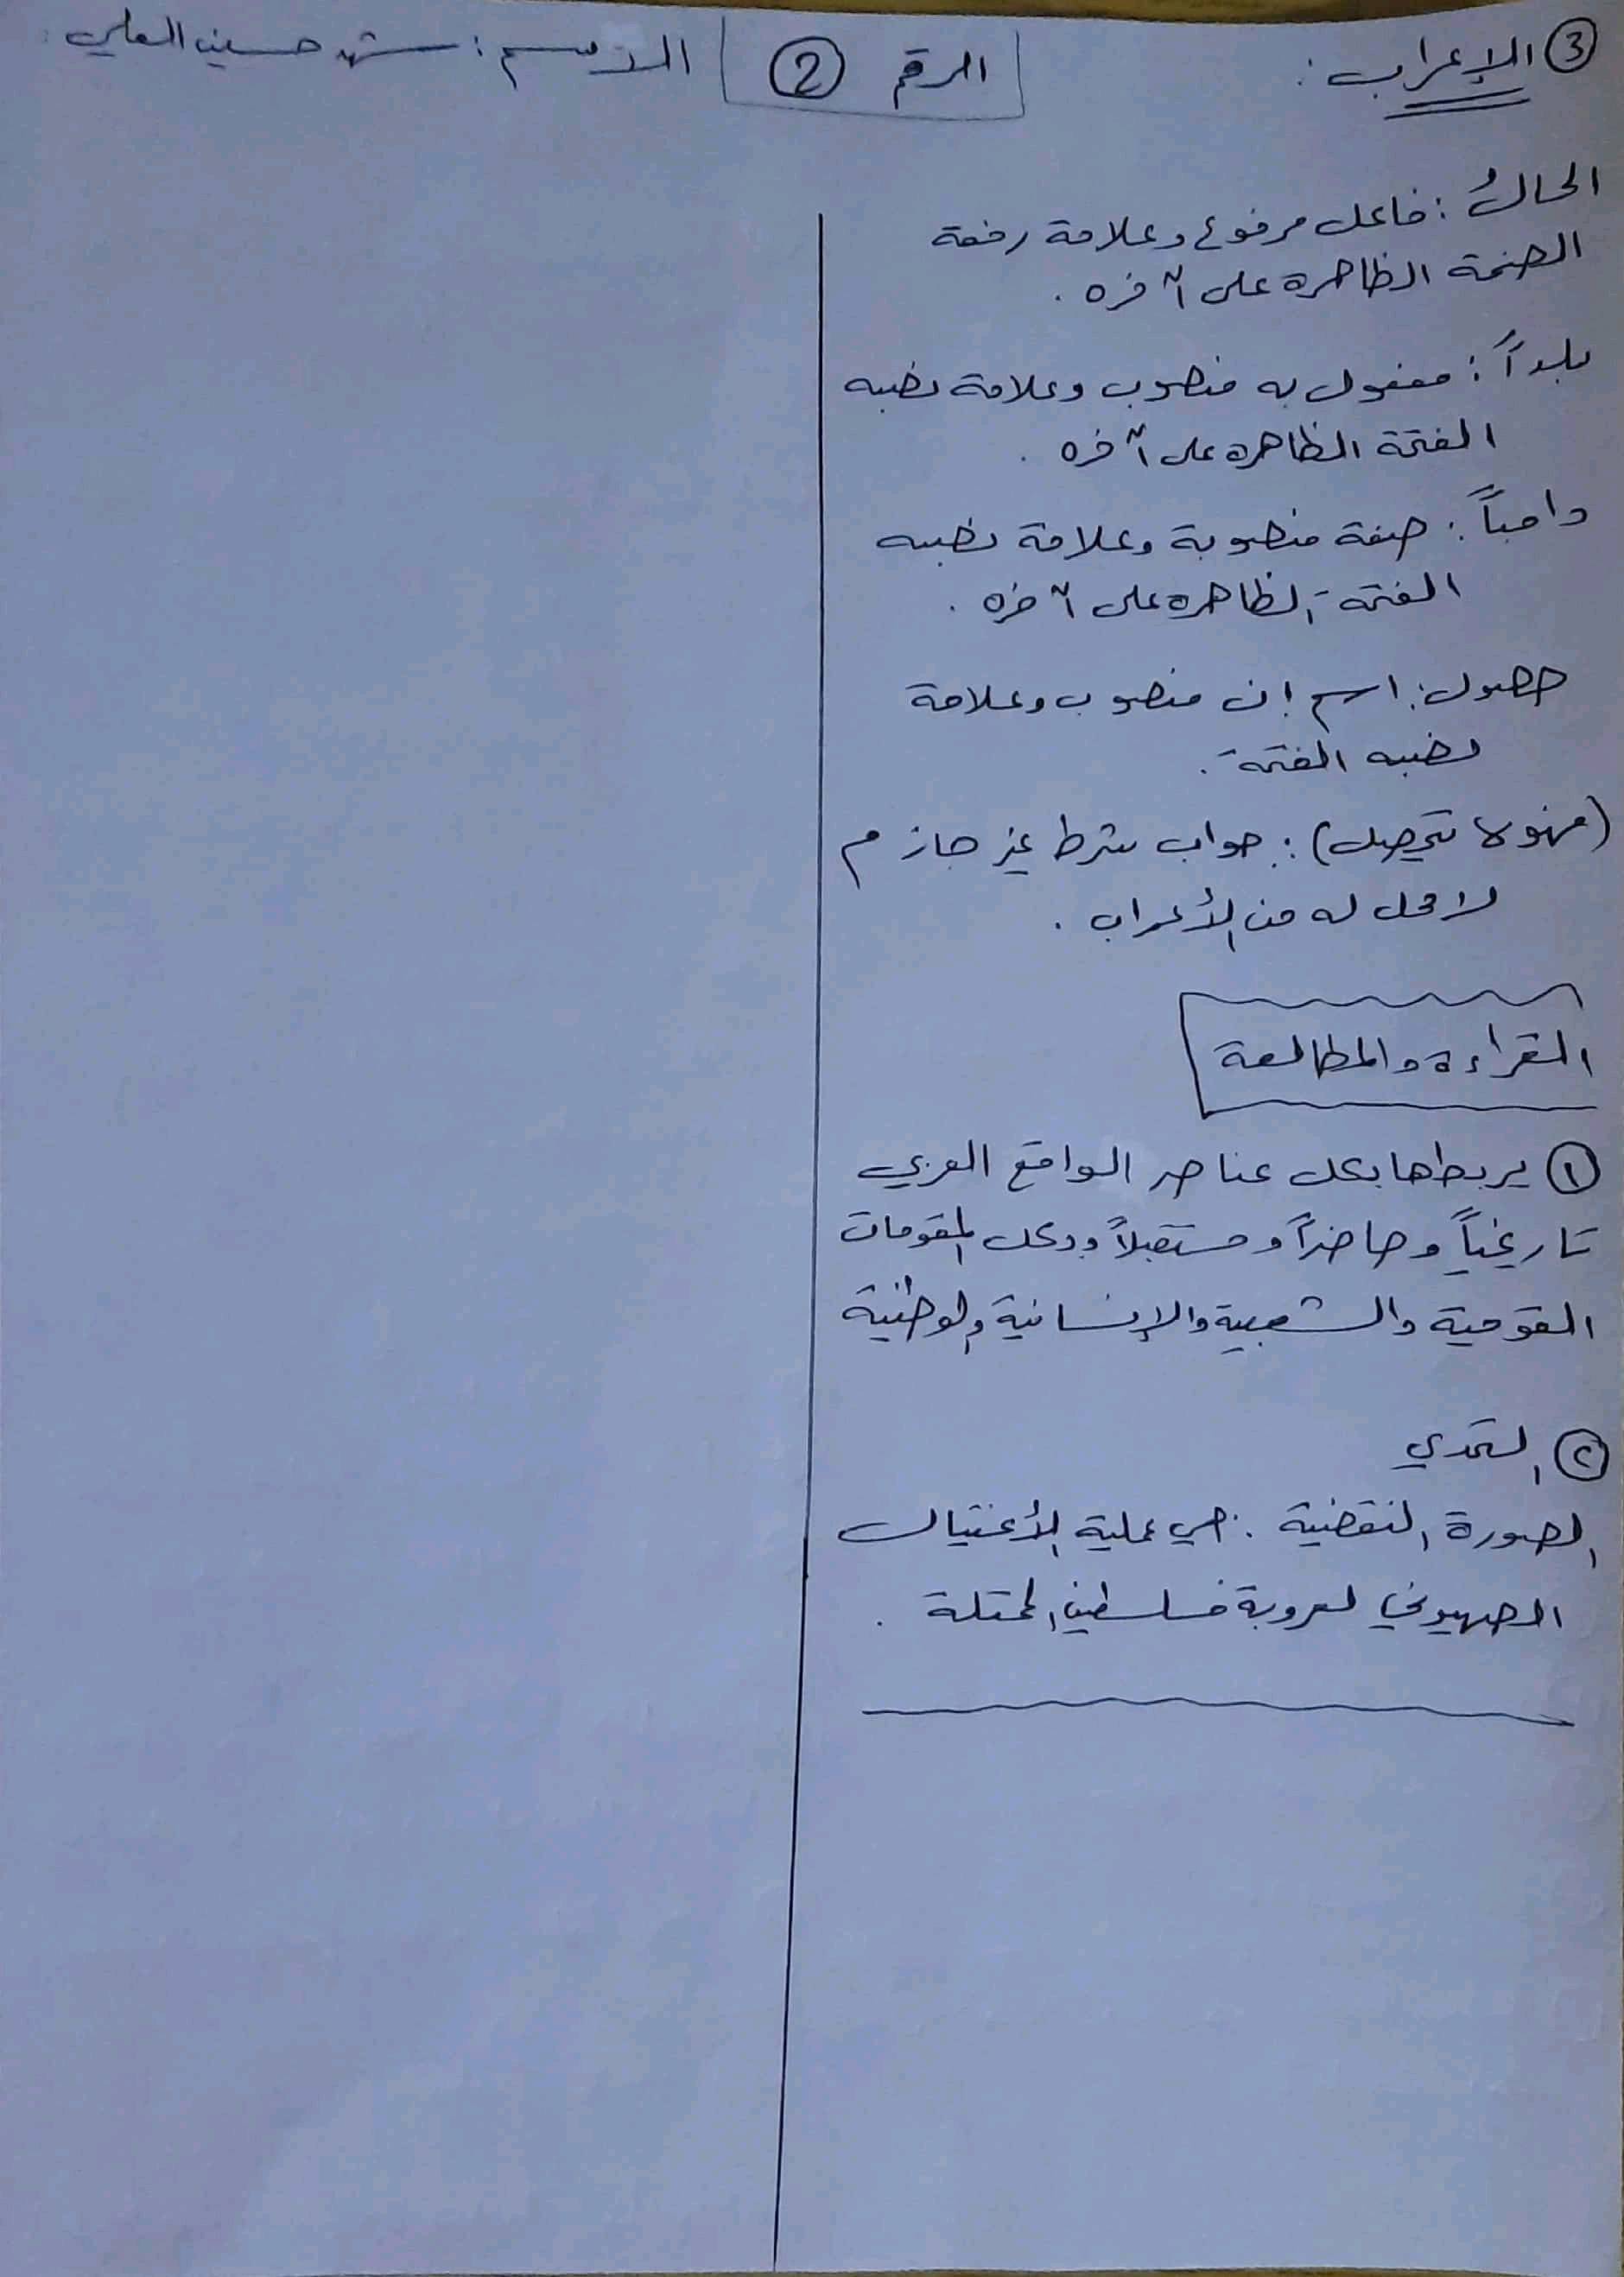 ③ الإعراب :
الرقم ②
الاسم : شهد حسين العلي :
الحالُ : فاعل مرفوع وعلامة رفعة
الضمة الظاهرة على آخره .
بلداً : مفعول به منصوب وعلامة نصبه
الفتحة الظاهرة على آخره .
دامياً : صفة منصوبة وعلامة نصبه
الفتحة الظاهرة على آخره .
حصول : اسم إن منصوب وعلامة
نصبه الفتحة .
(فهو لا تحصل) : جواب شرط غير جازم
لا محل له من الأعراب .
القراءة والمطالعة
① يربطها بكل عناصر الواقع العربي
تاريخياً وحاضراً ومستقبلاً وبكل المقومات
القومية والشعبية والإنسانية والوطنية
② التحدي
الصورة النقضية : هي عملية الأغتيال
الصهيوني لعروبة فلسطين المحتلة .